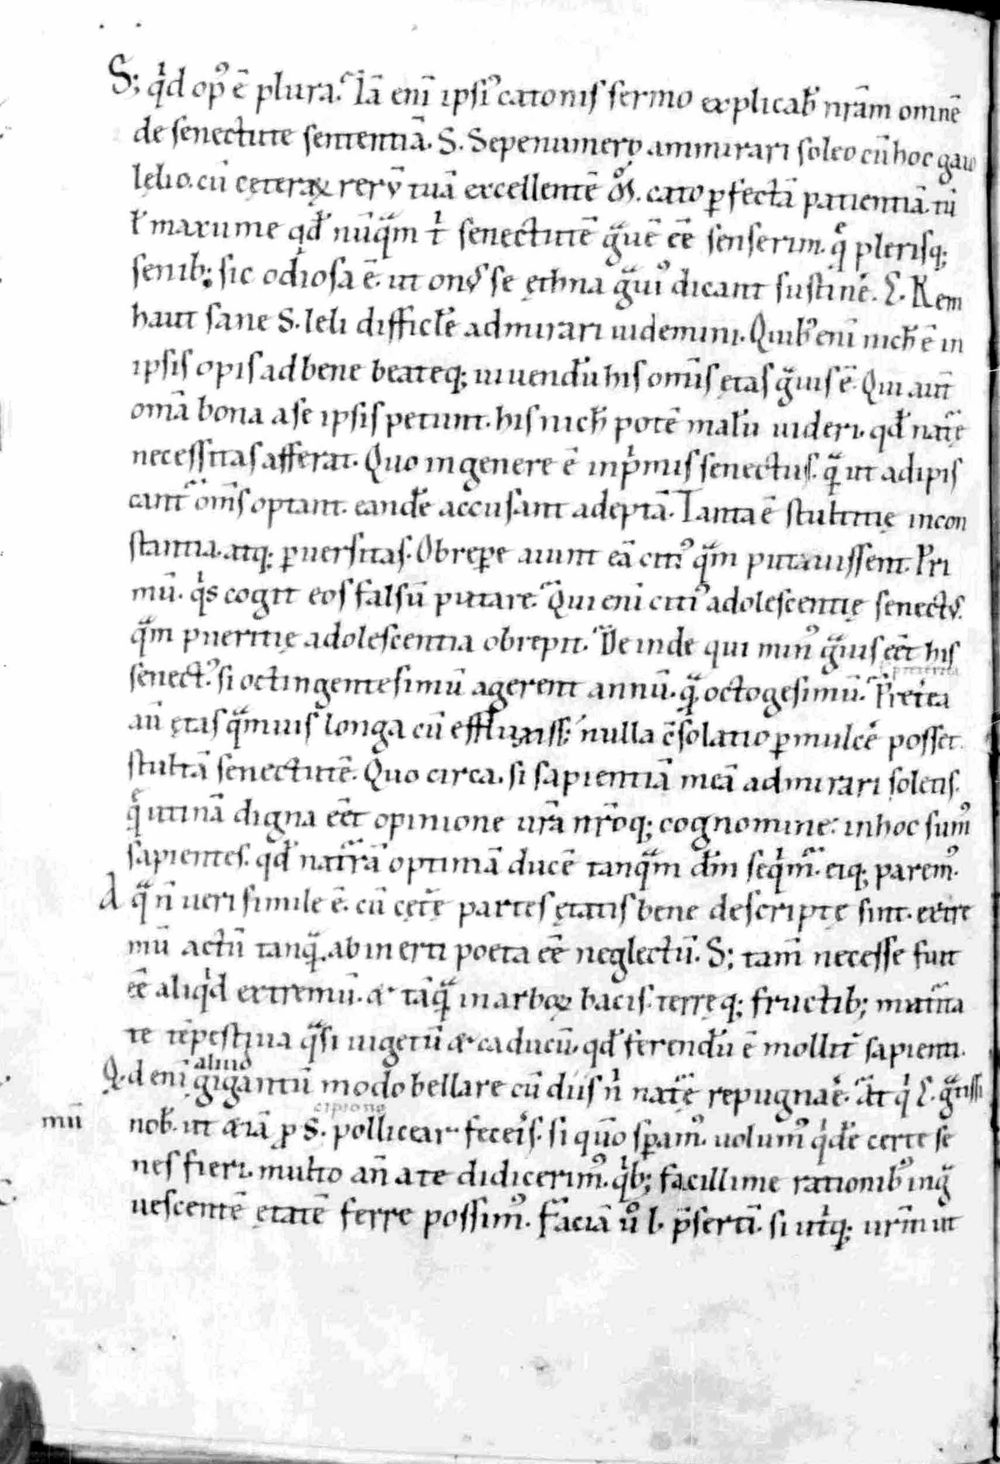 S; qͥd opꝰ ē plura. Iā eni̅ ipsiꝰ catonis sermo explicab̅ nr̅am omnē
de senectute sententiā. S. Sepenumero ammirari soleo cū hoc gaio
lęlio. cū cęteraꝝ rerū tuā excellentē .cato ꝑfectā patientiā. tū
ł maxume qd̅ nūqᷓm t̅ senectutē gᷓuē ēē senserim. qͤ plerisq;
senib; sic odiosa ē. ut onꝰ se ęthna gᷓuiꝰ dicant sustinē. C. Rem
haut sane S. leli difficilē admirari uidemini. Quibꝰ eni̅ nich̅ ē in
ipsis opis ad bene beateq; uiuendū his omīs ętas gᷓuis ē. Qui aut̅
om̅a bona a se ipsis petunt. his nich̅ potē malū uideri. qd̅ nat̅ę
necessitas afferat. Quo in genere ē inpͥmis senectus. qᷓ ut adipis
cant᷑ om̅s optant. eandē accusant adeptā. Tanta ē stultitię incon
stantia. atq; ꝑuersitas. Obreꝑe aiunt eā citiꝰ qᷓm putauissent. Pri
mū. qͥs cogit eos falsū putare. Qui eni̅ citiꝰ adolescentię senectꝰ.
qᷓm pueritię adolescentia obrepit. De inde qui minꝰ gᷓuis eēt his
senectꝰ. si octingentesimū agerent annū. qᷓ octogesimū. Pret̅ita
preterita
au̅ ętas qᷓmuis longa cū effluxiss; nulla c̅solatio ꝑmulcē posset.
stultā senectutē. Quo circa. si sapientiā meā admirari soletis.
qͤ utinā digna eēt opinione ur̅a nr̅oq; cognomine. in hoc sumꝰ
sapientes. qd̅ nat̅rā optimā ducē tanqᷓm dm̅ seqͥm᷑. eiq; paremꝰ.
A qᷓ n̅ ueri simile ē. cū cęt̅ę partes ętatis bene descriptę sint. extre
mū actū tanqᷓ. ab inerti poeta eē neglectū. S; tam̅ necesse fuit
eē aliqͥd extremū. & tāqᷓ in arboꝝ bacis. terręq; fructib; mat̅ita
te tēpestiua qᷓsi uigetū & caducū. qd̅ ferendū ē mollit̅ sapienti.
aliud
Q. d eni̅ gigantū modo bellare cū diis n̅ nat̅ę repugnaē. At qͥ C. gᷓtissi
cipione
mū nob̅. ut &iā ꝓ S. pollicear. feceīs. si qu̅o sꝑam᷑. uolumꝰ qͥdē certe se
nes fieri. multo an̅ a te didicerimꝰ. qͥb; facillime rationibꝰ ingᷓ
uescentē ętatē ferre possimꝰ. Faciā u̅o l. p̅serti̅. si utͥq; ur̅m ut